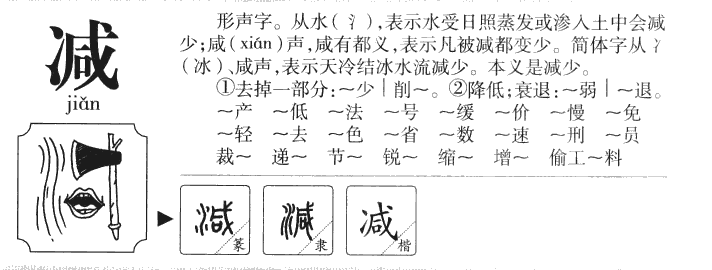 减
jiǎn
形声字。从水(氵),表示水受日照蒸发或渗入土中会减
少;咸(xián)声,咸有都义,表示凡被减都变少。简体字从冫
(冰)、咸声,表示天冷结冰水流减少。本义是减少。
①去掉一部分:~少|削~。②降低;衰退:~弱|~退。
~产 ~低 ~法 ~号 ~缓 ~价 ~慢 ~免
~轻 ~去 ~色 ~省 ~数 ~速 ~刑 ~员
裁~ 递~ 节~ 锐~ 缩~ 增~ 偷工~料
減 篆 減 隶 减 楷